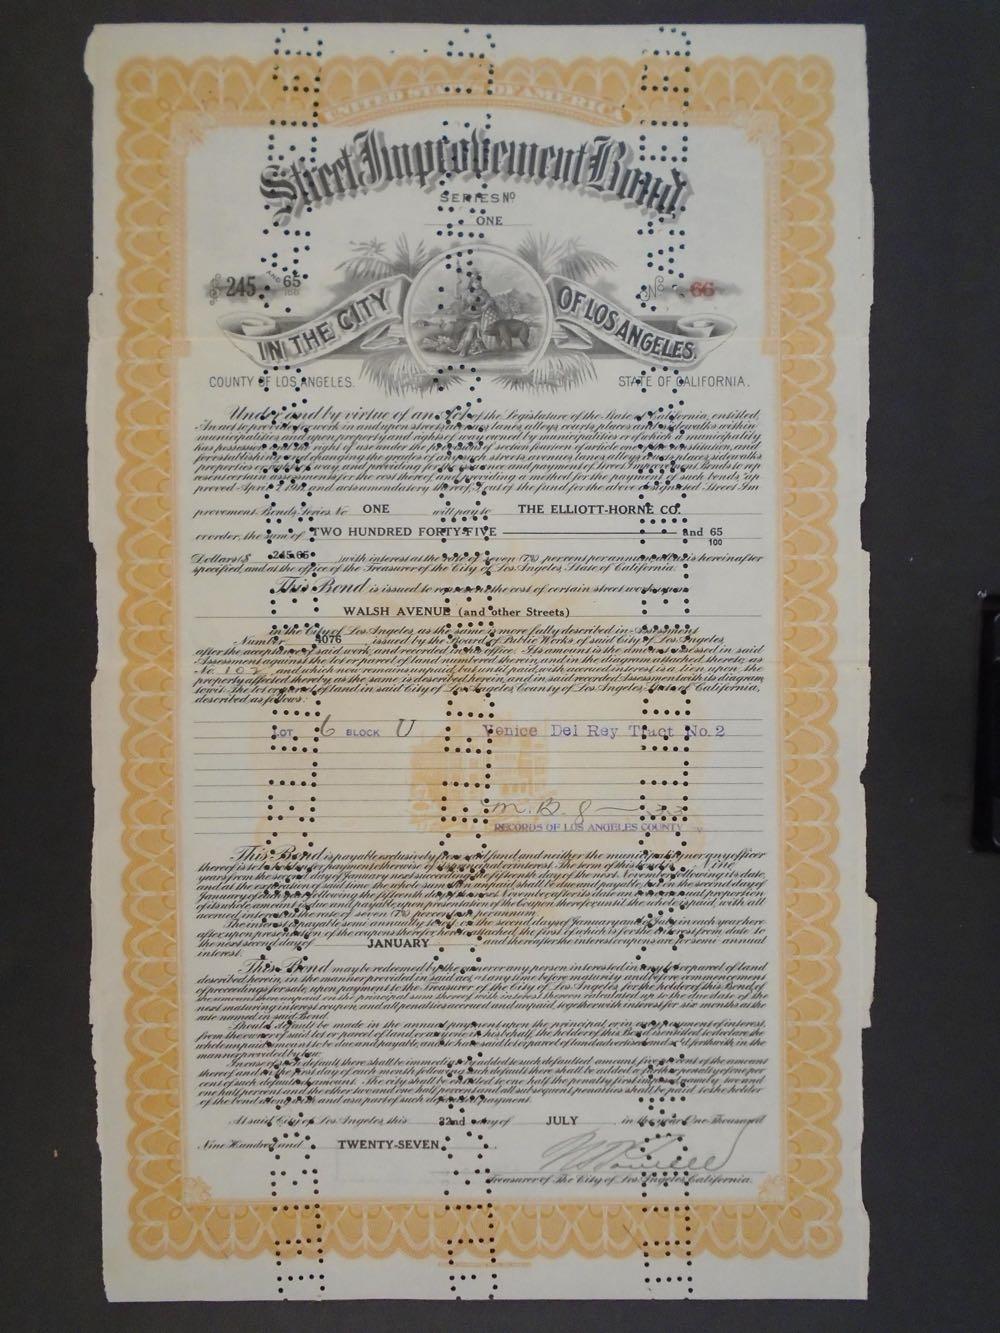 UNITED STATES OF AMERICA
Street Improvement Bond
SERIES No
ONE
245 AND 65/100
No 66
IN THE CITY OF LOS ANGELES.
COUNTY OF LOS ANGELES. STATE OF CALIFORNIA.
Under and by virtue of an Act of the Legislature of the State of California, entitled,
An act to provide for work in and upon streets, avenues, lanes, alleys, courts, places and sidewalks within
municipalities and upon property and rights of way owned by municipalities or of which a municipality
has possession and the right of use under the provisions of section fourteen of article one of the constitution, and
for establishing and changing the grades of any such streets, avenues, lanes, alleys, courts, places, sidewalks
properties or rights of way, and providing for the issuance and payment of Street Improvement Bonds to rep
resent certain assessments for the cost thereof, and providing a method for the payment of such bonds," ap
proved April 7, 1911, and acts amendatory thereof, I, out of the fund for the above designated Street Im
provement Bonds, Series No ONE will pay to THE ELLIOTT-HORNE CO.
or order, the sum of TWO HUNDRED FORTY-FIVE and 65/100
Dollars ($ 245.65 ) with interest at the rate of seven (7%) per cent per annum, all as is hereinafter
specified, and at the office of the Treasurer of the City of Los Angeles, State of California.
This Bond is issued to represent the cost of certain street work upon
WALSH AVENUE (and other Streets)
in the City of Los Angeles, as the same is more fully described in Assessment
Number 4076 issued by the Board of Public Works of said City of Los Angeles,
after the acceptance of said work, and recorded in its office. Its amount is the amount assessed in said
Assessment against the lot or parcel of land numbered therein, and in the diagram attached thereto, as
No. 102 and which now remains unpaid, but until paid, with accrued interest, is a lien upon the
property affected thereby, as the same is described herein, and in said recorded Assessment with its diagram,
to wit: The lot or parcel of land in said City of Los Angeles, County of Los Angeles, State of California,
described as follows:
LOT 6 BLOCK U Venice Del Rey Tract No. 2
M. B. 8
RECORDS OF LOS ANGELES COUNTY
This Bond is payable exclusively from said fund, and neither the municipality nor any officer
thereof is to be holden for payment otherwise of its principal or interest. The term of this bond is nine
years from the second day of January next succeeding the fifteenth day of the next November following its date,
and at the expiration of said time the whole sum then unpaid shall be due and payable; but on the second day of
January of each year following the fifteenth day of the next November after its date, an even annual proportion
of its whole amount is due and payable, upon presentation of the Coupon therefor, until the whole is paid, with all
accrued interest at the rate of seven (7%) per cent per annum.
The interest is payable semi-annually, to wit: on the second days of January and of July in each year here
after, upon presentation of the coupons therefor, hereto attached, the first of which is for the interest from date to
the next second day of JANUARY and thereafter the interest coupons are for semi-annual
interest.
This Bond may be redeemed by the owner or any person interested in any lot or parcel of land
described herein, in the manner provided in said act, at any time before maturity and before commencement
of proceedings for sale, upon payment to the Treasurer of the City of Los Angeles for the holder of this Bond, of
the amount then unpaid on the principal sum thereof with interest thereon calculated up to the due date of the
next maturing interest coupon, and all penalties accrued and unpaid, together with interest for six months at the
rate named in said Bond.
Should default be made in the annual payment upon the principal, or in any payment of interest,
from the owner of said lot or parcel of land, or any one in his behalf, the holder of this Bond is entitled to declare the
whole unpaid amount to be due and payable, and to have said lot or parcel of land advertised and sold forthwith, in the
manner provided by law.
In case of such default there shall be immediately added to such defaulted amount, five per cent of the amount
thereof and on the first day of each month following such default there shall be added a further penalty of one per
cent of such defaulted amount. The city shall be entitled to one half the penalty first imposed, namely two and
one half per cent and the other two and one half per cent and all subsequent penalties shall be paid to the holder
of the bond along with and as a part of such defaulted payment.
At said City of Los Angeles, this 22nd day of JULY in the year One Thousand
Nine Hundred and TWENTY-SEVEN.
Treasurer of The City of Los Angeles, California.